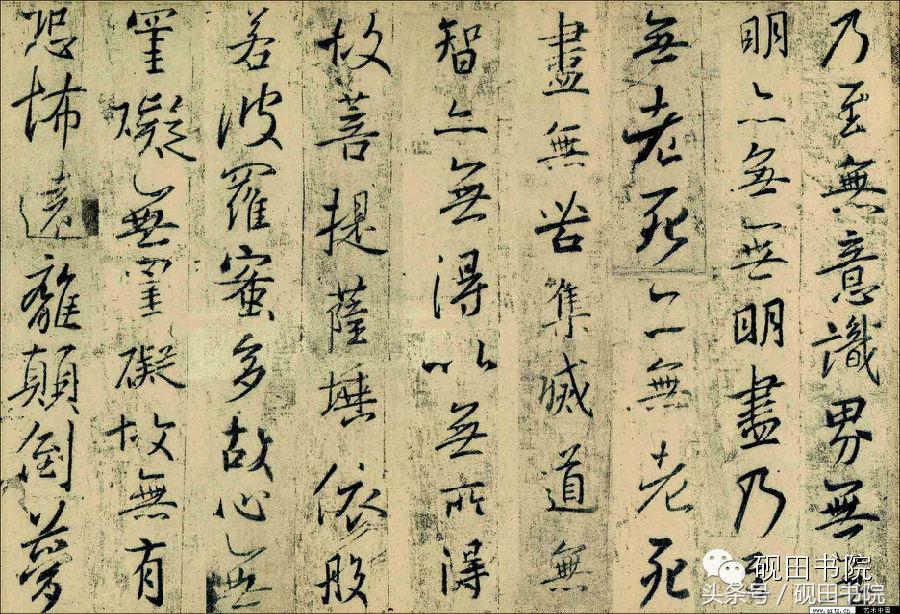 乃至無意識界無
明亦無無明盡乃至
無老死亦無老死
盡無苦集滅道無
智亦無得以無所得
故菩提薩埵依般
若波羅蜜多故心無
罣礙無罣礙故無有
恐怖遠離顛倒夢
砚田书院
头条号 / 砚田书院
www.artx.cn 艺术中国